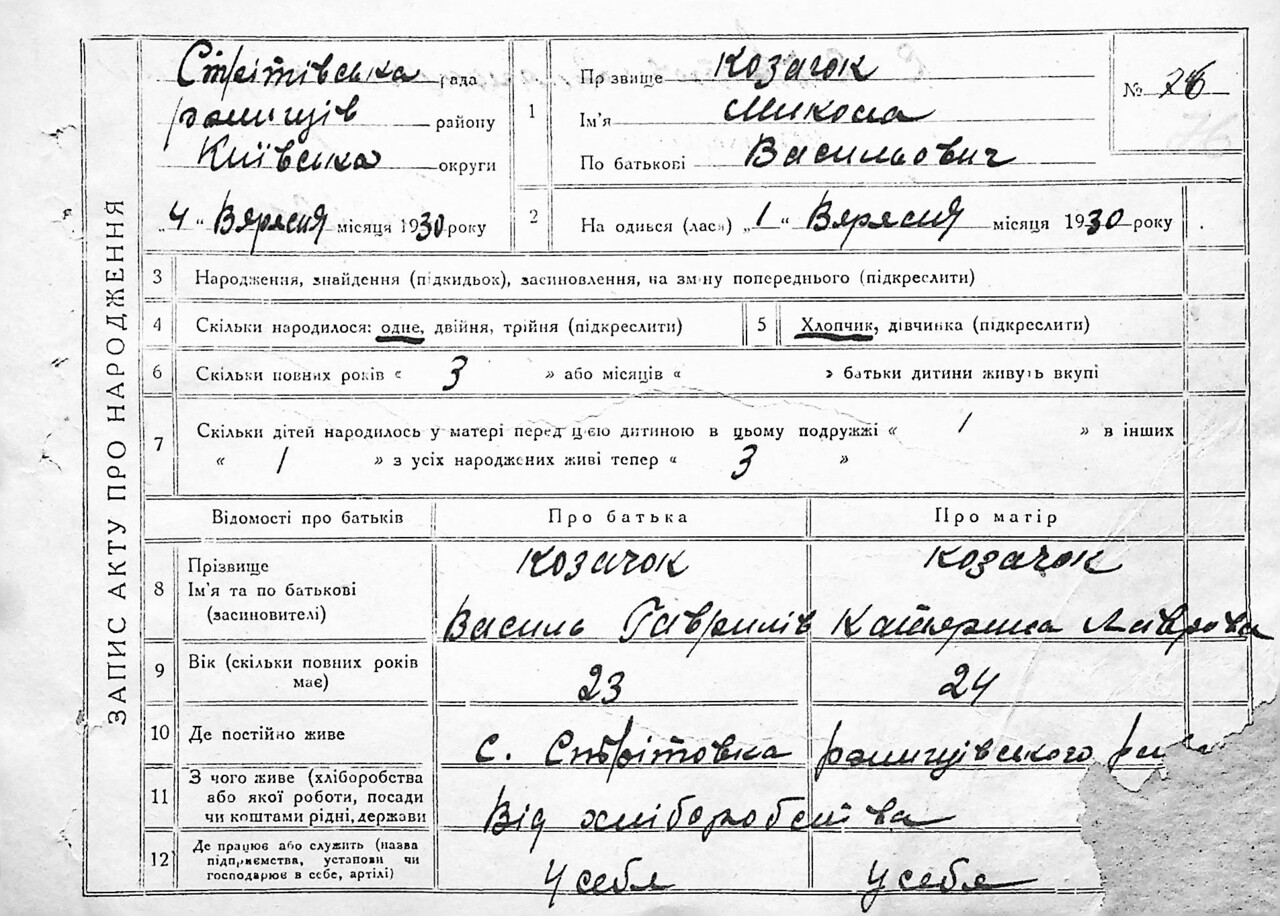 ЗАПИС АКТУ ПРО НАРОДЖЕННЯ
Стрітівська рада
району
Київська округи
„ 4 “ Вересня місяця 1930 року
1 Прізвище Козачок
Ім'я Микола
По батькові Васильович
№ 26
2 На одився (лася) „ 1 “ Вересня місяця 1930 року
3 Народження, знайдення (підкидьок), засиновлення, на зміну попереднього (підкреслити)
4 Скільки народилося: одне, двійня, трійня (підкреслити)
5 Хлопчик, дівчинка (підкреслити)
6 Скільки повних років « 3 » або місяців « » батьки дитини живуть вкупі
7 Скільки дітей народилось у матері перед цією дитиною в цьому подружжі « / » в інших
« / » з усіх народжених живі тепер « 3 »
Відомості про батьків Про батька Про матір
8 Прізвище Козачок Козачок
Ім'я та по батькові
(засиновителі) Василь Гаврилів Катерина Лаврова
9 Вік (скільки повних років
має) 23 24
10 Де постійно живе с. Стрітовка
11 З чого живе (хліборобства
або якої роботи, посади
чи коштами рідні, держави Від хліборобства
12 Де працює або служить (назва
підприємства, установи чи
господарює в себе, артілі) У себе У себе